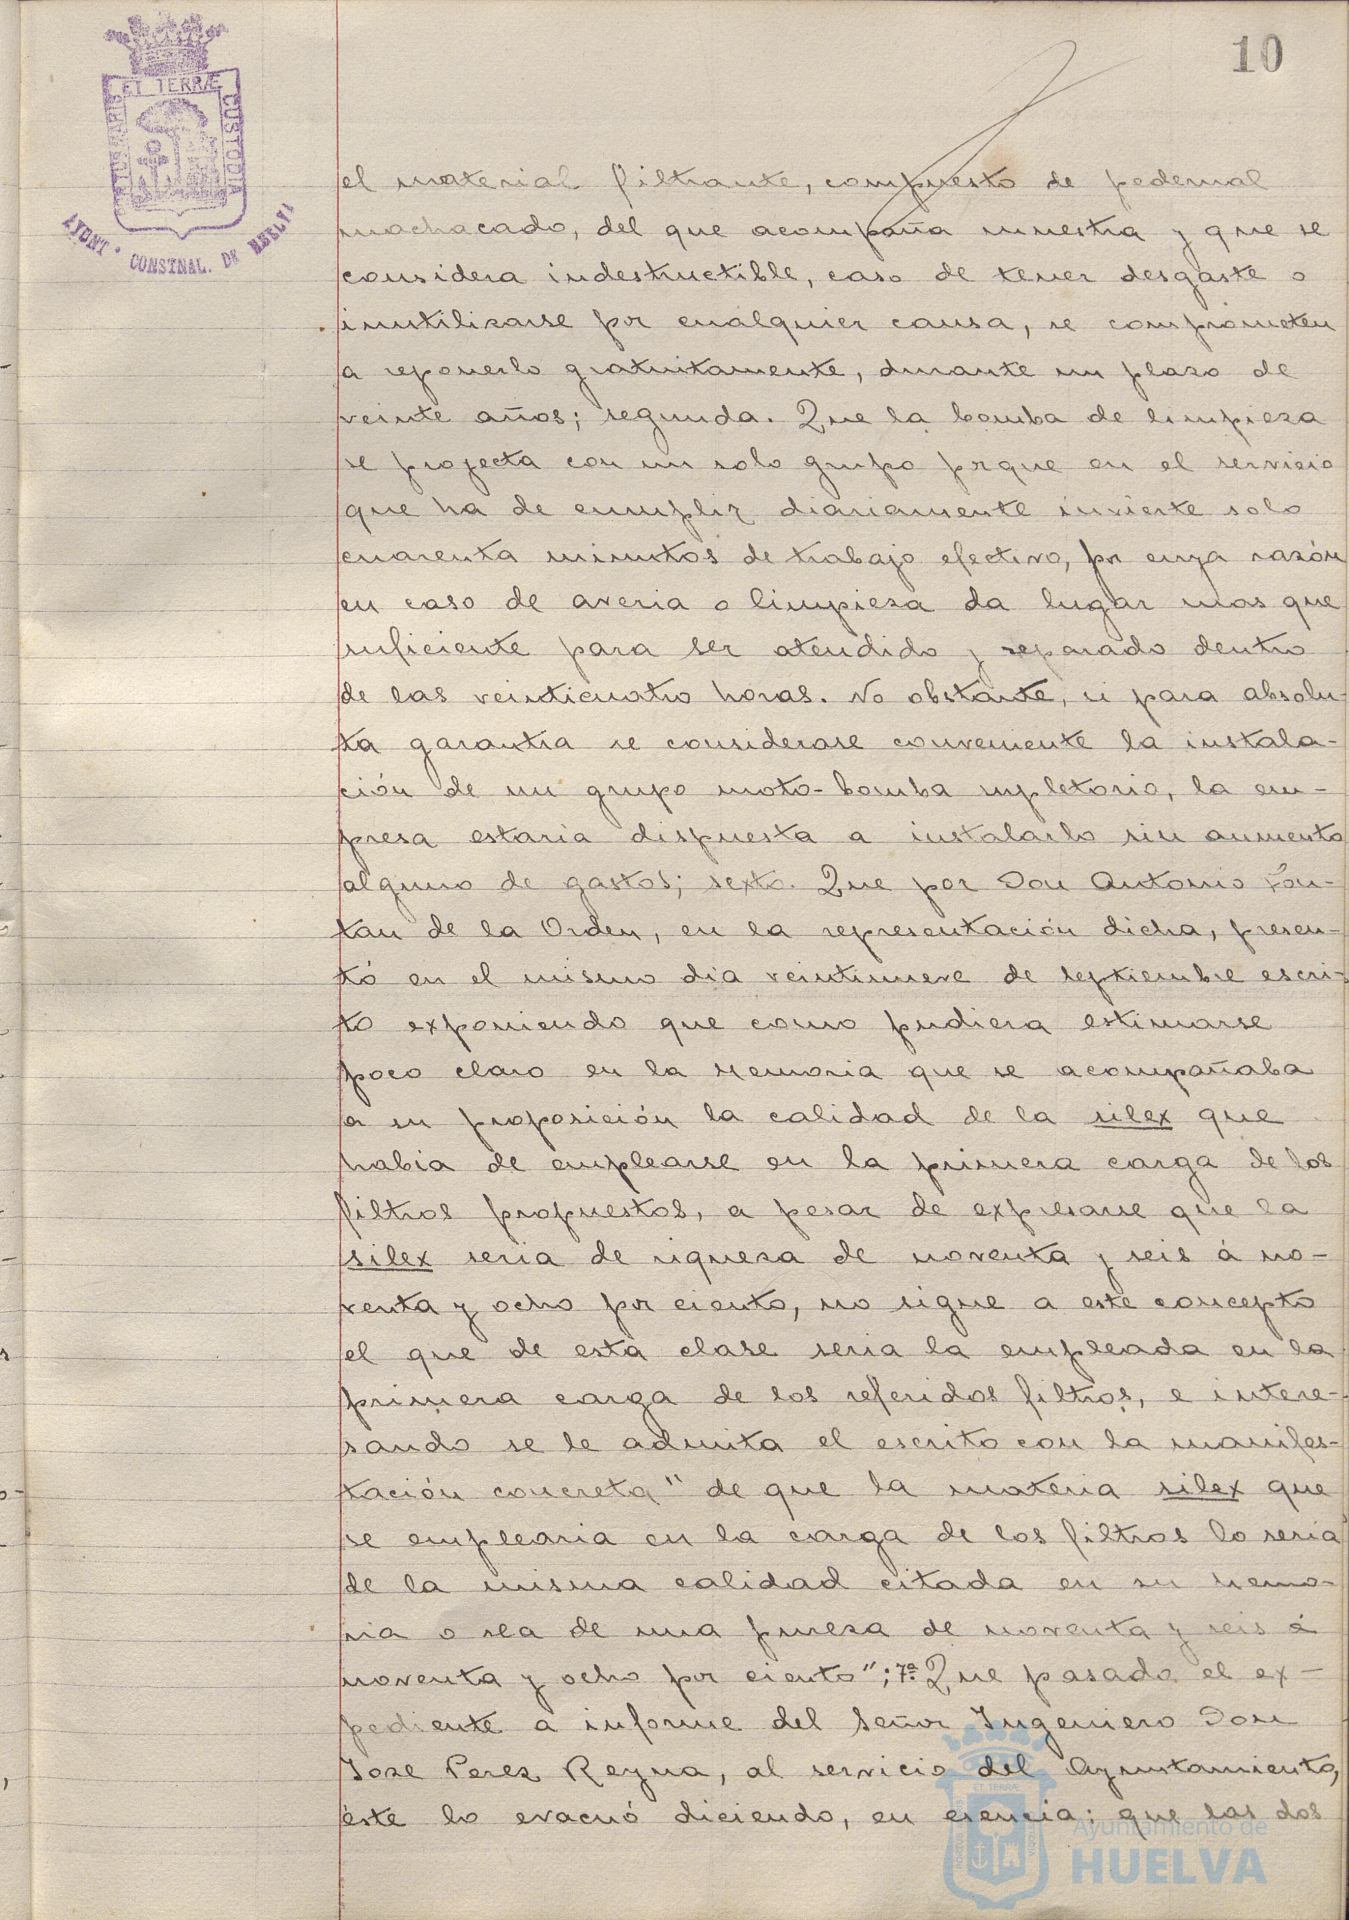 10
PORTUS MARIS ET TERRÆ CUSTODIA
AYONT. CONSTNAL. DE HUELVA
el material filtrante, compuesto de pedernal
machacado, del que acompaña muestra y que se
considera indestructible, caso de tener desgaste o
inutilizarse por cualquier causa, se comprometen
a reponerlo gratuitamente, durante un plazo de
veinte años; segunda. Que la bomba de limpieza
se projecta con un solo grupo porque en el servicio
que ha de cumplir diariamente invierte solo
cuarenta minutos de trabajo efectivo, por cuya razón
en caso de averia o limpieza da lugar mas que
suficiente para ser atendido y reparado dentro
de las veinticuatro horas. No obstante, si para absolu-
ta garantia se considerase conveniente la instala-
ción de un grupo moto-bomba supletorio, la em-
presa estaria dispuesta a instalarlo sin aumento
alguno de gastos; sexto. Que por Don Antonio Fon-
tan de la Orden, en la representación dicha, presen-
tó en el mismo dia veintinueve de septiembre escri-
to exponiendo que como pudiera estimarse
poco claro en la Memoria que se acompañaba
a su proposición la calidad de la silex que
habia de emplearse en la primera carga de los
filtros propuestos, a pesar de expresarse que la
silex seria de riqueza de noventa y seis á no-
venta y ocho por ciento, no sigue a este concepto
el que de esta clase seria la empleada en la
primera carga de los referidos filtros, e intere-
sando se le admita el escrito con la manifes-
tación concreta "de que la materia silex que
se emplearia en la carga de los filtros lo seria
de la misma calidad citada en su Memo-
ria o sea de una pureza de noventa y seis á
noventa y ocho por ciento"; 7ª. Que pasado el ex-
pediente a informe del Señor Ingeniero Don
Jose Perez Reyna, al servicio del Ayuntamiento,
éste lo evacuó diciendo, en esencia: que las dos
Ayuntamiento de
HUELVA